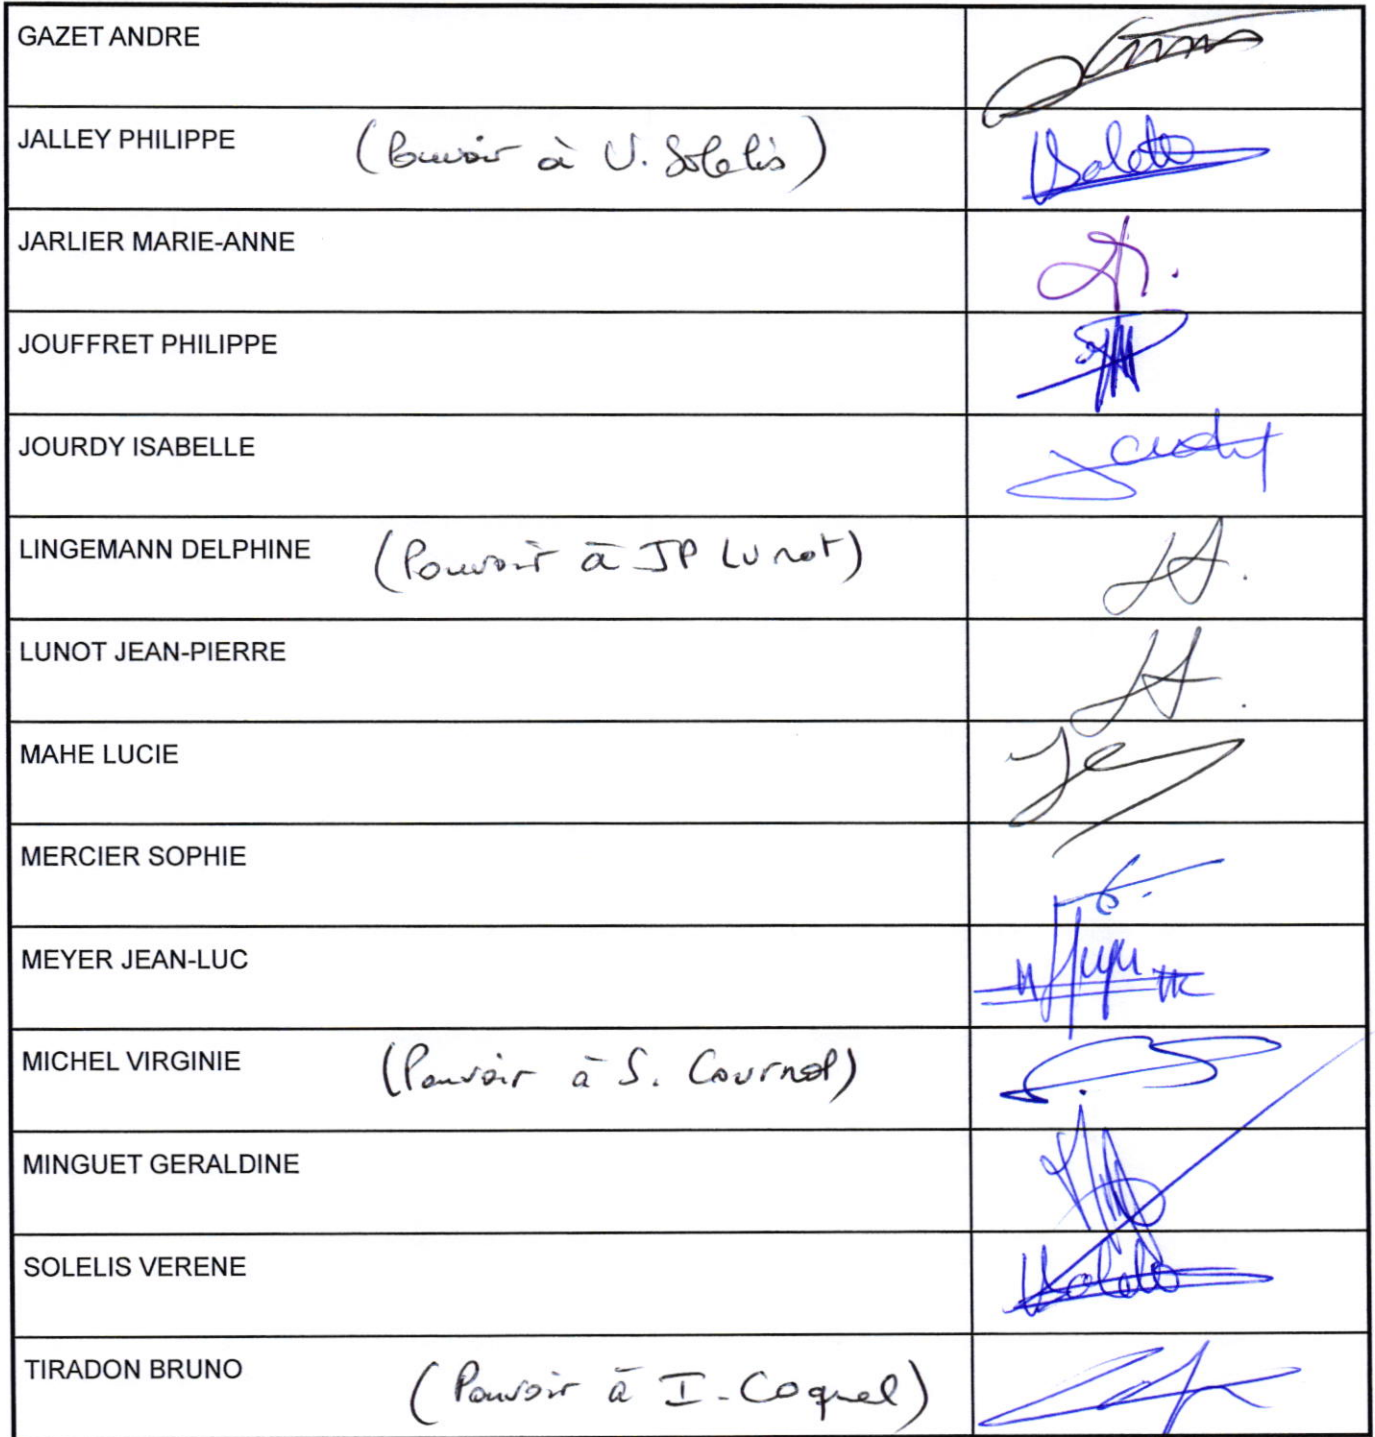 GAZET ANDRE
JALLEY PHILIPPE (Pouvoir à V. Solelis)
JARLIER MARIE-ANNE
JOUFFRET PHILIPPE
JOURDY ISABELLE
LINGEMANN DELPHINE (Pouvoir à JP Lunot)
LUNOT JEAN-PIERRE
MAHE LUCIE
MERCIER SOPHIE
MEYER JEAN-LUC
MICHEL VIRGINIE (Pouvoir à S. Cournol)
MINGUET GERALDINE
SOLELIS VERENE
TIRADON BRUNO (Pouvoir à I. Coquel)